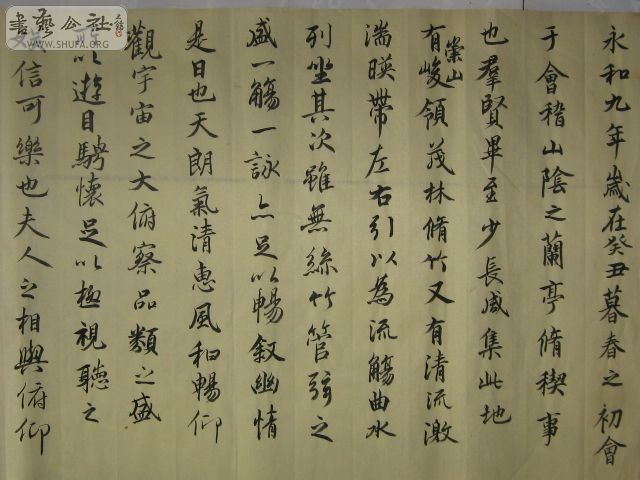 永和九年歲在癸丑暮春之初會
于會稽山陰之蘭亭脩稧事
也羣賢畢至少長咸集此地
有崇山峻領茂林脩竹又有清流激
湍暎帶左右引以為流觴曲水
列坐其次雖無絲竹管弦之
盛一觴一詠亦足以暢敘幽情
是日也天朗氣清惠風和暢仰
觀宇宙之大俯察品類之盛
所以遊目騁懷足以極視聽之
娛信可樂也夫人之相與俯仰
書藝公社
www.SHUFA.ORG